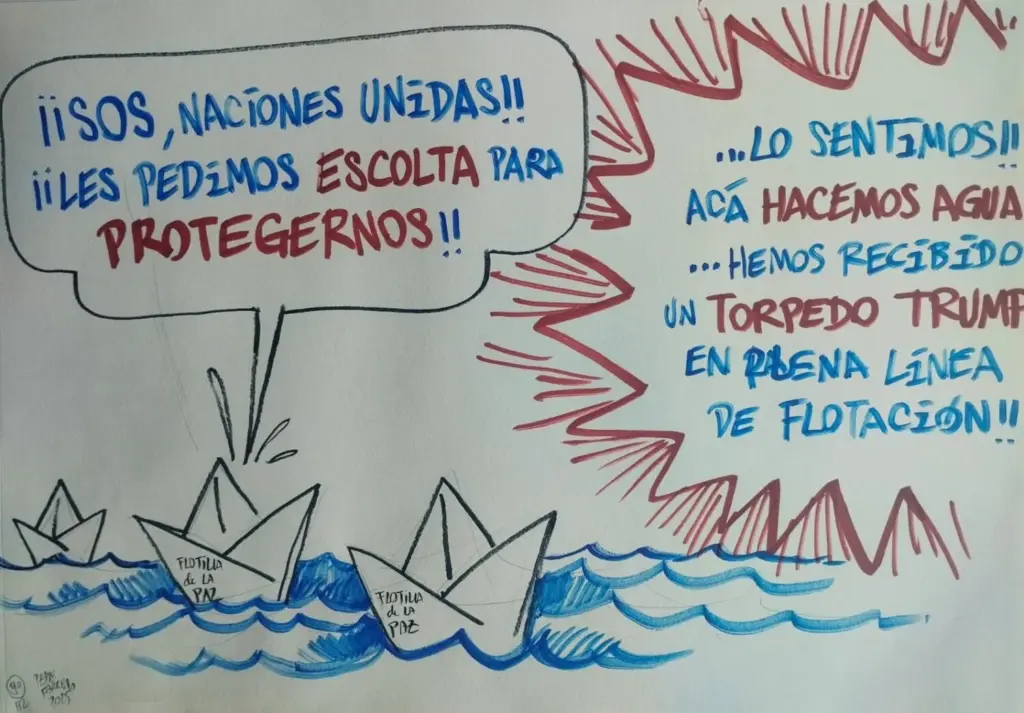 ¡¡SOS, NACIONES UNIDAS!!
¡¡LES PEDIMOS ESCOLTA PARA
PROTEGERNOS!!
...LO SENTIMOS!!
ACÁ HACEMOS AGUA
...HEMOS RECIBIDO
UN TORPEDO TRUMP
EN PLENA LÍNEA
DE FLOTACIÓN!!
FLOTILLA
de LA
PAZ
FLOTILLA
de LA
PAZ
2025